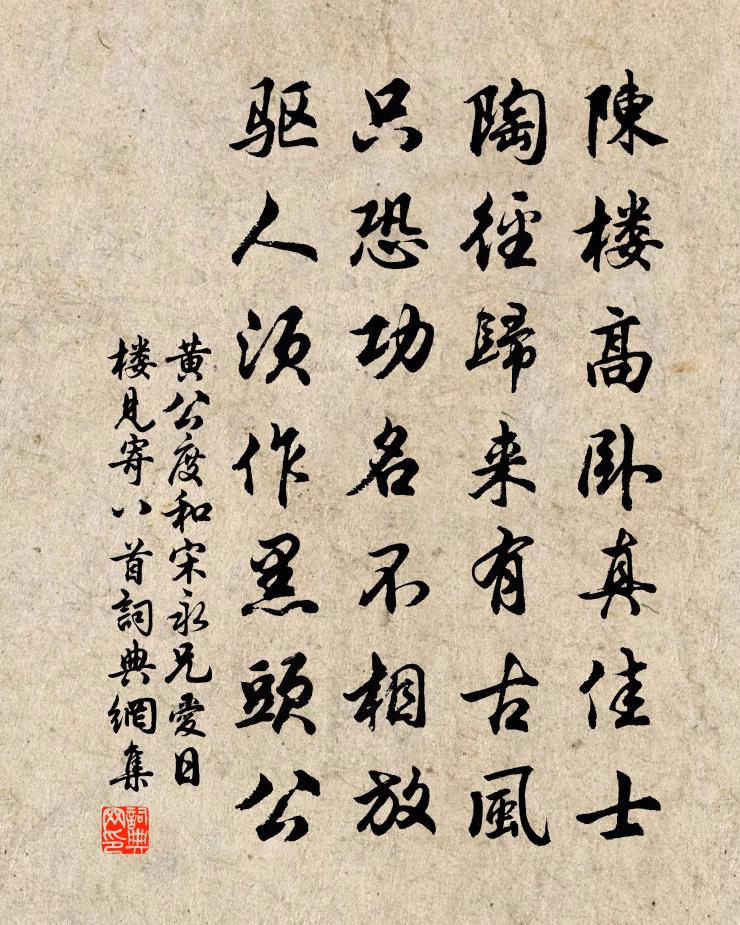 陳楼高卧真佳士
陶徑歸来有古風
只恐功名不相放
驱人须作黑頭公
黄公度和宋永兄愛日
楼見寄八首詞典網集
詞典网印